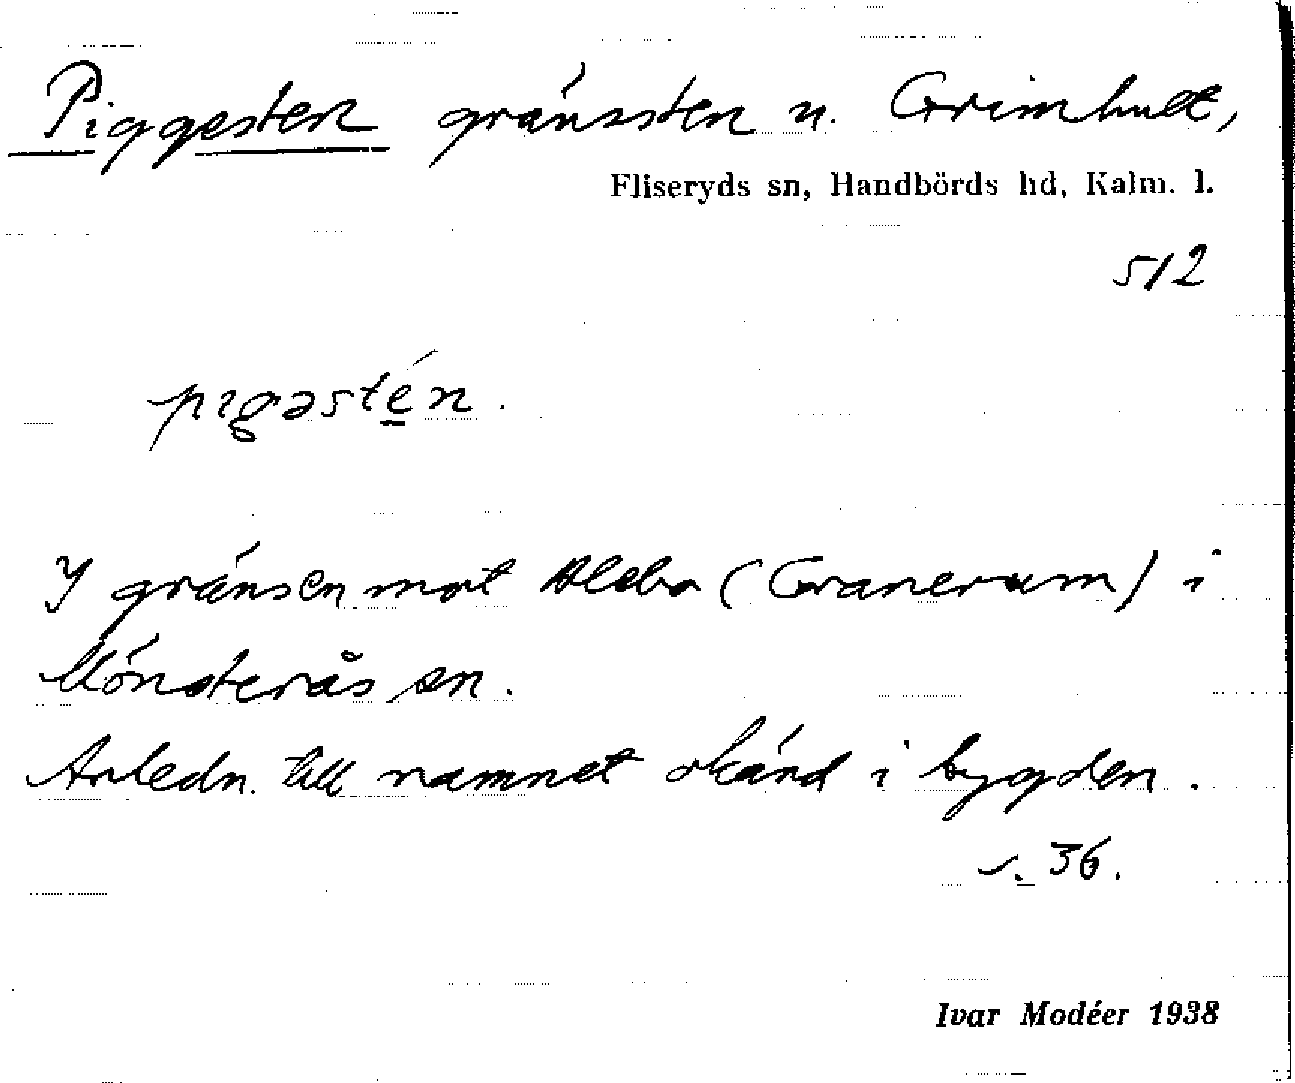 Piggesten gränssten u. Grimhult,
Fliseryds sn, Handbörds hd, Kalm. l.
512
pıgəstén.
I gränsen mot Alebo (Granerum) i
Mönsterås sn.
Anledn. till namnet okänd i bygden.
s. 36.
Ivar Modéer 1938